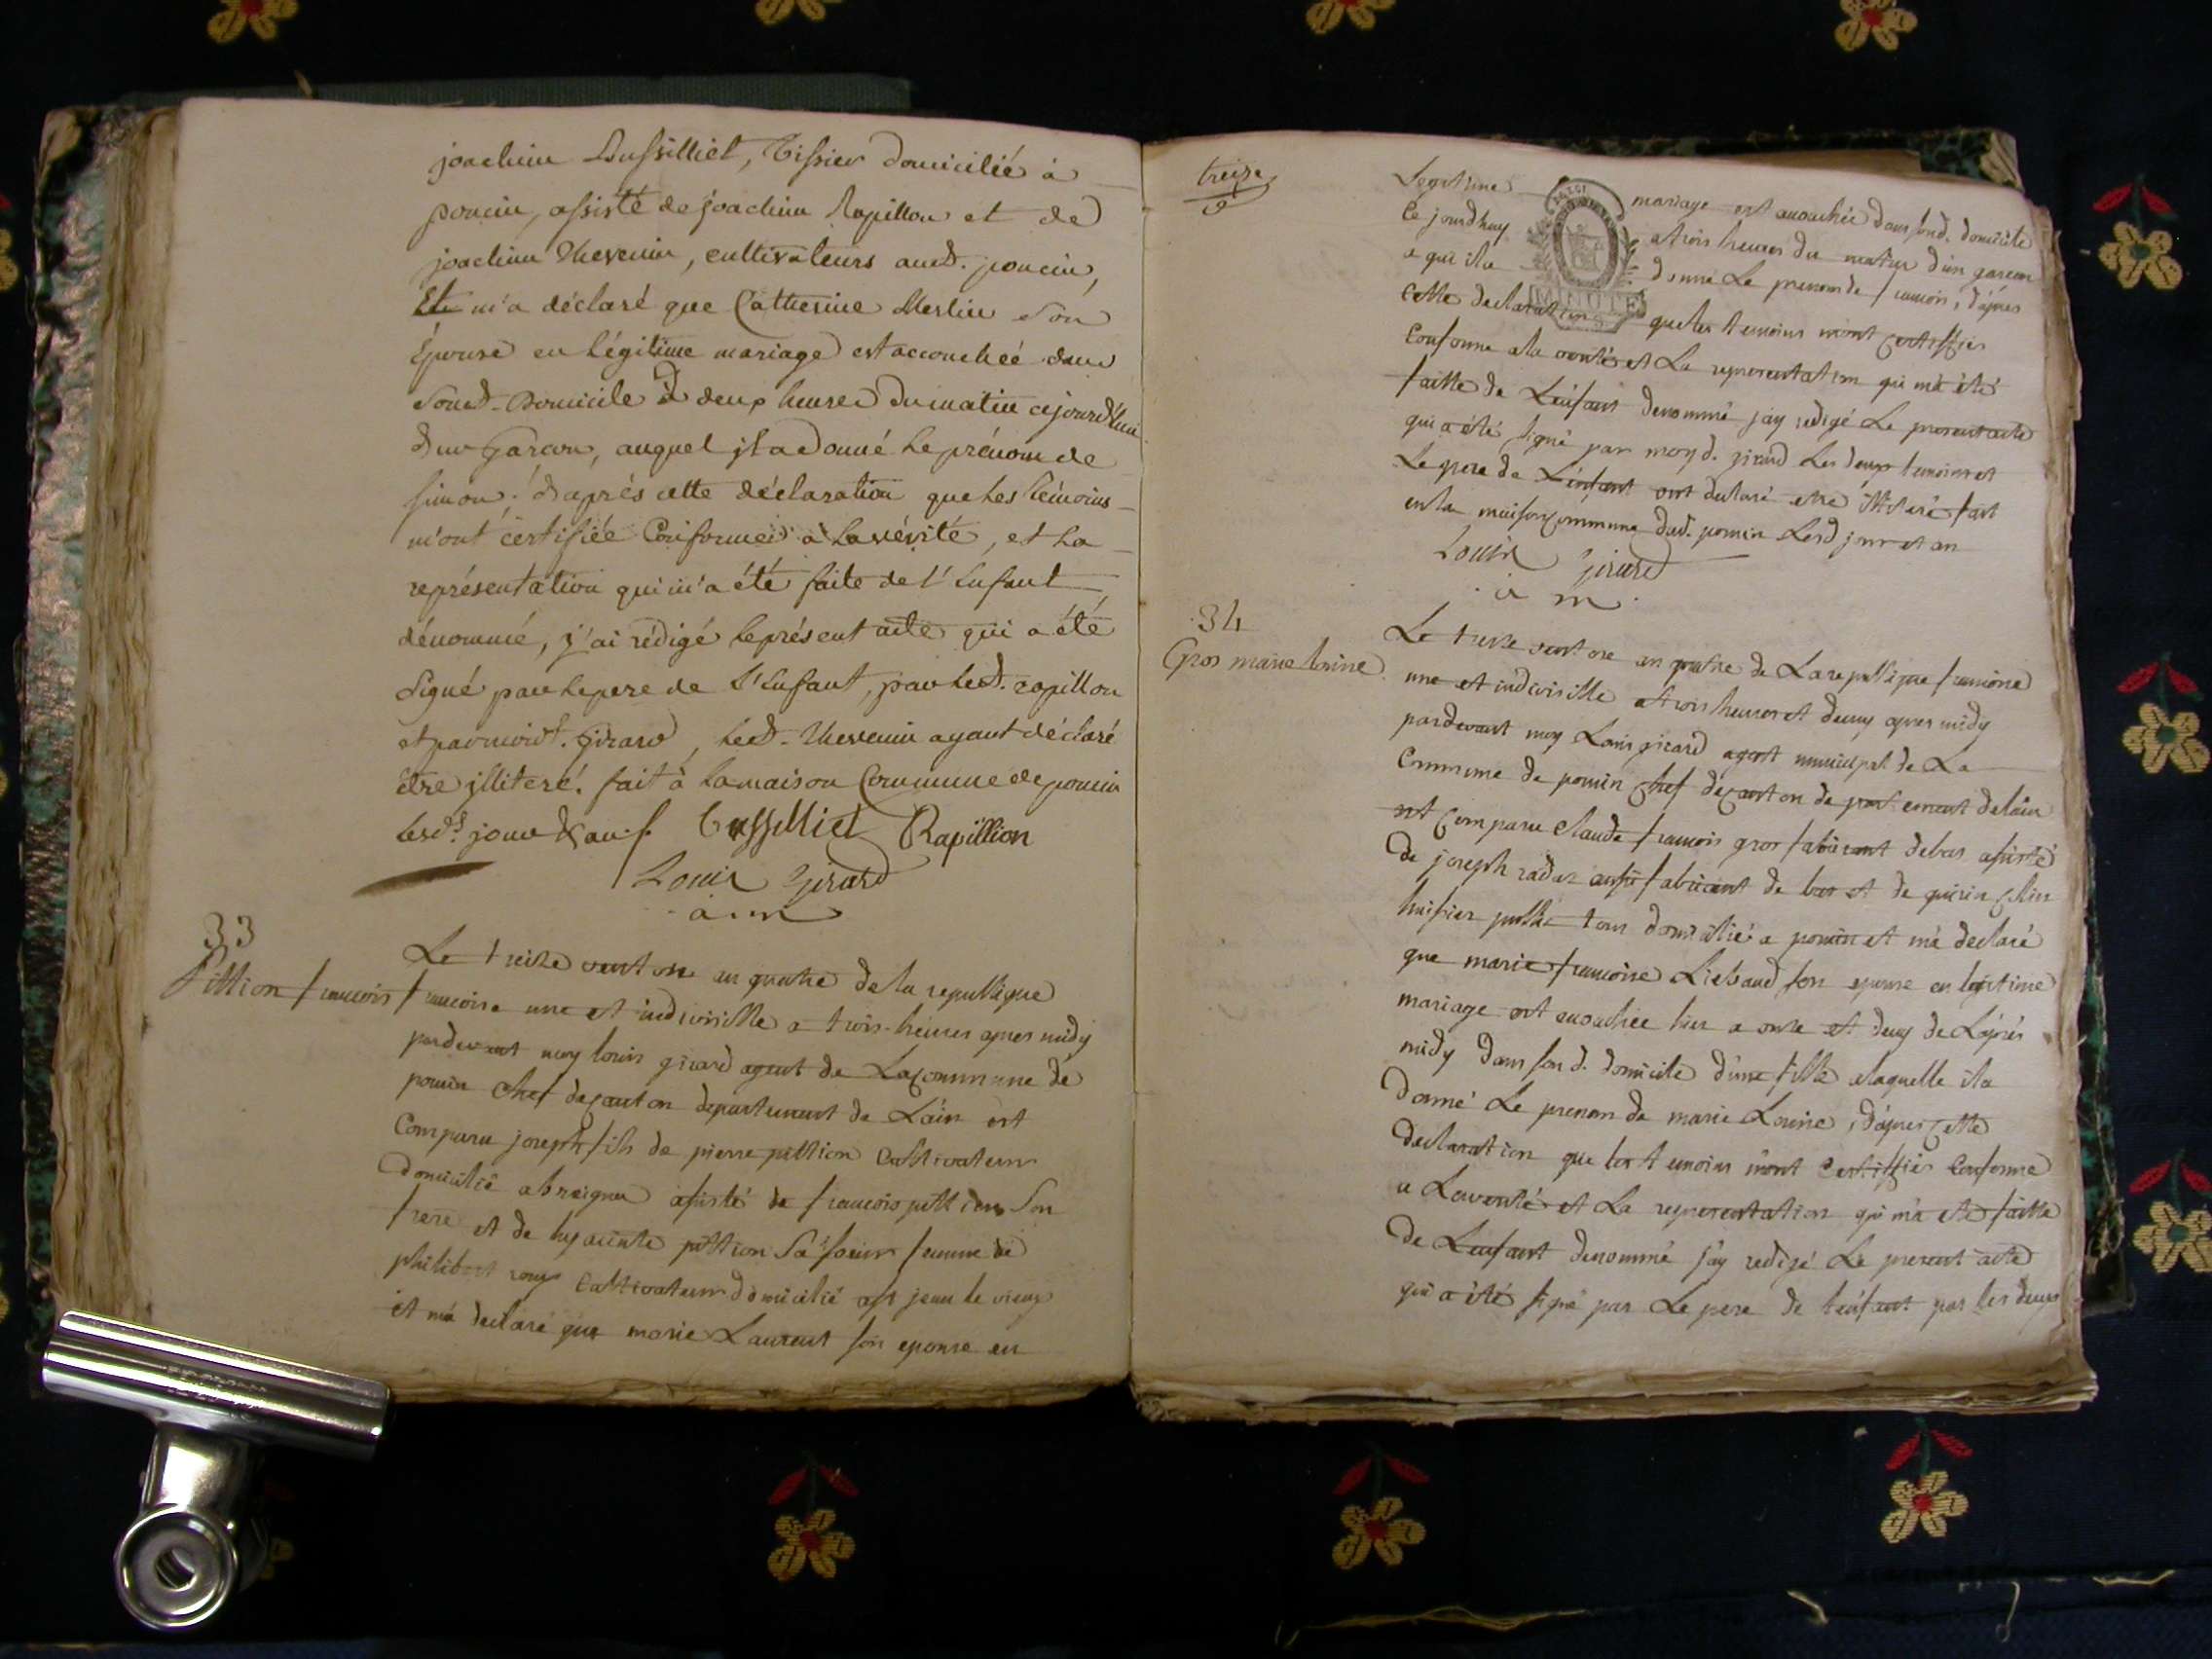 joachim Dussilliet, Tissier domiciliée à
poncin, assisté de joachim Rapillon et de
joachim Thevenin, cultivateurs aud. poncin,
Et m'a déclaré que Catherine Merlin Son
Épouse en légitime mariage est accouchée dans
Soud. Domicile à deux heures du matin cejourd'hui
d'un Garçon, auquel jl a donné le prénom de
Simon; d'après cette déclaration que les témoins
m'ont certifiée Conforme à la vérité, et la
représentation qui m'a été faite de l'Enfant
dénommé, j'ai rédigé le présent acte qui a été
Signé par le pere de l'Enfant, par led. rapillon
et par moid. Girard, led. Thevenin ayant déclaré
être jlliteré. fait à la maison Commune de poncin
lesd. jour & an.
Dussilliet Rapillion
Louis Girard
a m
33
Pittion francois
Le treize ventose an quatre de la republique
francoise une et indivisible a trois heures apres midy
pardevant moy louis girard agent de La commune de
poncin chef de canton departement de L'ain est
Comparu joseph fils de pierre pittion Cultivateur
domicilié a breignes assisté de francois pittion Son
frere et de hyacinte pittion Sa soeur femme de
philibert roux Cultivateur domicilié a st jean le vieux
et m'a declaré que marie Laurent son epouse en
treize
9
Legitime mariage est accouchée dans sond. domicile
Ce jourdhuy a trois heures du matin d'un garcon
a qui il a donné Le prenom de francois, d'apres
cette declaration que les temoins m'ont certiffiés
Conforme a la verité et La representation qui m'a été
faitte de L'enfant denommé jay redigé Le present acte
qui a été signé par moy d. girard Les deux temoins et
Le pere de L'enfant ont declaré etre Illiteré fait
en la maison commune dud. poncin Lesd jour et an
Louis Girard
a m
MINUTE
34
Gros marie louise
Le treize ventose an quatre de La republique francoise
une et indivisible a trois heures et demy apres midy
pardevant moy Louis girard agent municipal de La
Commune de poncin chef de canton departement de lain
est comparu Claude francois gros fabricant de bas assisté
de joseph radaz aussi fabricant de bas et de quirin
huissier public tous domicilié a poncin et m'a declaré
que marie francoise Liebaud son epouse en legitime
mariage est accouchée hier a onze et demy de L'après
midy dans son d. domicile d'une fille a laquelle il a
donné Le prenom de marie Louise, d'apres cette
declaration que les temoins m'ont certiffiés Conforme
a La verité et La representation qui m'a eté faitte
de L'enfant denommé j'ay redigé Le present acte
qui a été signé par Le pere de l'enfant par les deux